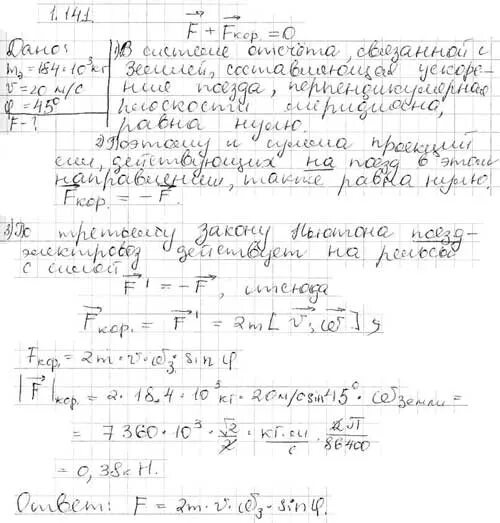 1.141
F⃗ + F⃗кор. = 0
Дано:
m₃ = 184·10³ кг
v = 20 м/с
φ = 45°
F - ?
1) В системе отсчёта, связанной с
Землей, составляющая ускоре-
ние поезда, перпендикулярная
плоскости меридиана,
равна нулю.
2) Поэтому и сумма проекций
сил, действующих на поезд в этом
направлении, также равна нулю.
F⃗кор. = -F⃗.
3) По третьему закону Ньютона поезд-
электровоз действует на рельсы
с силой
F⃗' = -F⃗, отсюда
F⃗кор. = F⃗' = 2m[v⃗; ω⃗];
Fкор. = 2m·v·ω₃·sin φ
|F⃗|кор. = 2·18,4·10³ кг·20 м/с sin 45°·ωЗемли =
= 7360·10³·√2/2·кг·м/с·2π/86400
= 0,38 кН.
Ответ: F = 2m·v·ω₃·sin φ.